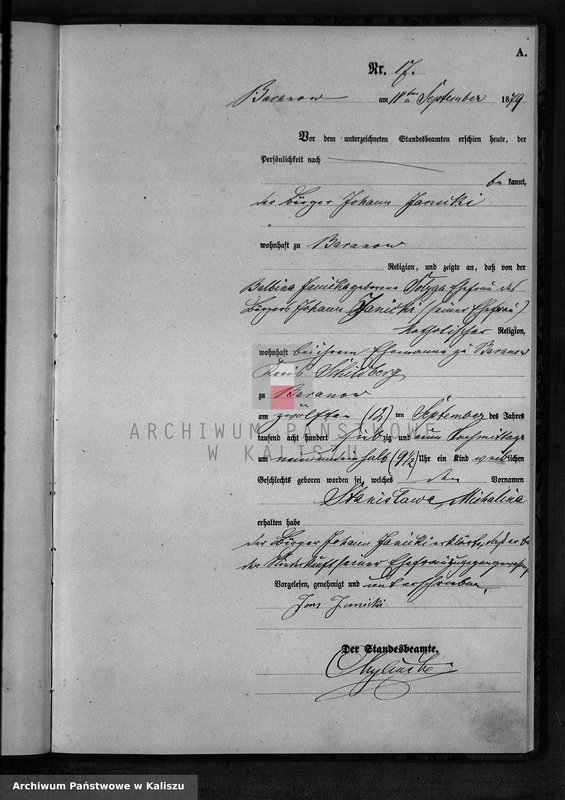 A.
Nr. 17.
Baranow am 18ten September 1879
Vor dem unterzeichneten Standesbeamten erschien heute, der
Persönlichkeit nach
be kannt,
der Bürger Johann Janicki
wohnhaft zu Baranow
Religion, und zeigte an, daß von der
Balbina Janicka geborene Ehefrau des
Bürgers Johann Janicki (seiner Ehefrau)
katholischer Religion,
wohnhaft bei ihrem Ehemanne zu Baranow
Kreis Schildberg
zu Baranow
am zwölften (12) ten September des Jahres
tausend acht hundert siebzig und neun Vormittags
um neinundeinhalb (9½) Uhr ein Kind weiblichen
Geschlechts geboren worden sei, welches den Vornamen
Stanisława, Michalina
erhalten habe
der Bürger Johann Janicki erklärte, daß er bei
der Niederkunft seiner Ehefrau zugegen gewesen
Vorgelesen, genehmigt und unterschrieben,
Jan Janicki
Der Standesbeamte.
ARCHIWUM PAŃSTWOWE
W KALISZU
Archiwum Państwowe w Kaliszu